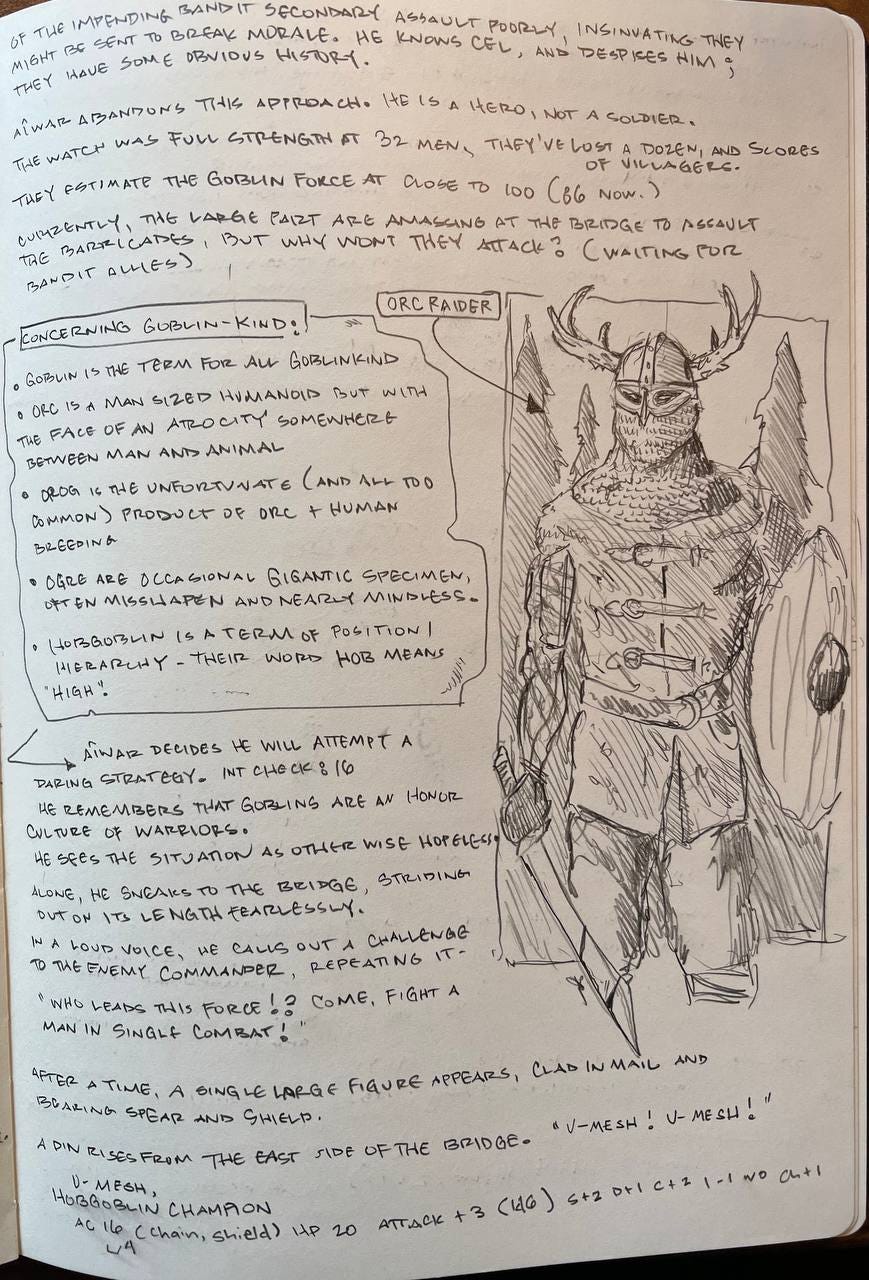 OF THE IMPENDING BANDIT SECONDARY ASSAULT POORLY, INSINUATING THEY
MIGHT BE SENT TO BREAK MORALE. HE KNOWS CEL, AND DESPISES HIM;
THEY HAVE SOME OBVIOUS HISTORY.
AÎWAR ABANDONS THIS APPROACH. HE IS A HERO, NOT A SOLDIER.
THE WATCH WAS FULL STRENGTH AT 32 MEN, THEY'VE LOST A DOZEN, AND SCORES
OF VILLAGERS.
THEY ESTIMATE THE GOBLIN FORCE AT CLOSE TO 100 (86 NOW.)
CURRENTLY, THE LARGE PART ARE AMASSING AT THE BRIDGE TO ASSAULT
THE BARRICADES, BUT WHY WONT THEY ATTACK? (WAITING FOR
BANDIT ALLIES)
ORC RAIDER
CONCERNING GOBLIN-KIND:
• GOBLIN IS THE TERM FOR ALL GOBLINKIND
• ORC IS A MAN SIZED HUMANOID BUT WITH
THE FACE OF AN ATROCITY SOMEWHERE
BETWEEN MAN AND ANIMAL
• OROG IS THE UNFORTUNATE (AND ALL TOO
COMMON) PRODUCT OF ORC + HUMAN
BREEDING
• OGRE ARE OCCASIONAL GIGANTIC SPECIMEN,
OFTEN MISSHAPEN AND NEARLY MINDLESS.
• HOBGOBLIN IS A TERM OF POSITION/
HIERARCHY - THEIR WORD HOB MEANS
"HIGH".
AÎWAR DECIDES HE WILL ATTEMPT A
DARING STRATEGY. INT CHECK: 16
HE REMEMBERS THAT GOBLINS ARE AN HONOR
CULTURE OF WARRIORS.
HE SEES THE SITUATION AS OTHER WISE HOPELESS.
ALONE, HE SNEAKS TO THE BRIDGE, STRIDING
OUT ON ITS LENGTH FEARLESSLY.
IN A LOUD VOICE, HE CALLS OUT A CHALLENGE
TO THE ENEMY COMMANDER, REPEATING IT-
"WHO LEADS THIS FORCE!? COME, FIGHT A
MAN IN SINGLE COMBAT!"
AFTER A TIME, A SINGLE LARGE FIGURE APPEARS, CLAD IN MAIL AND
BEARING SPEAR AND SHIELD.
A DIN RISES FROM THE EAST SIDE OF THE BRIDGE. "U-MESH! U-MESH!"
U-MESH,
HOBGOBLIN CHAMPION
AC 16 (chain, shield) HP 20 ATTACK +3 (1d6) S+2 D+1 C+2 I-1 W0 Ch+1
LV4